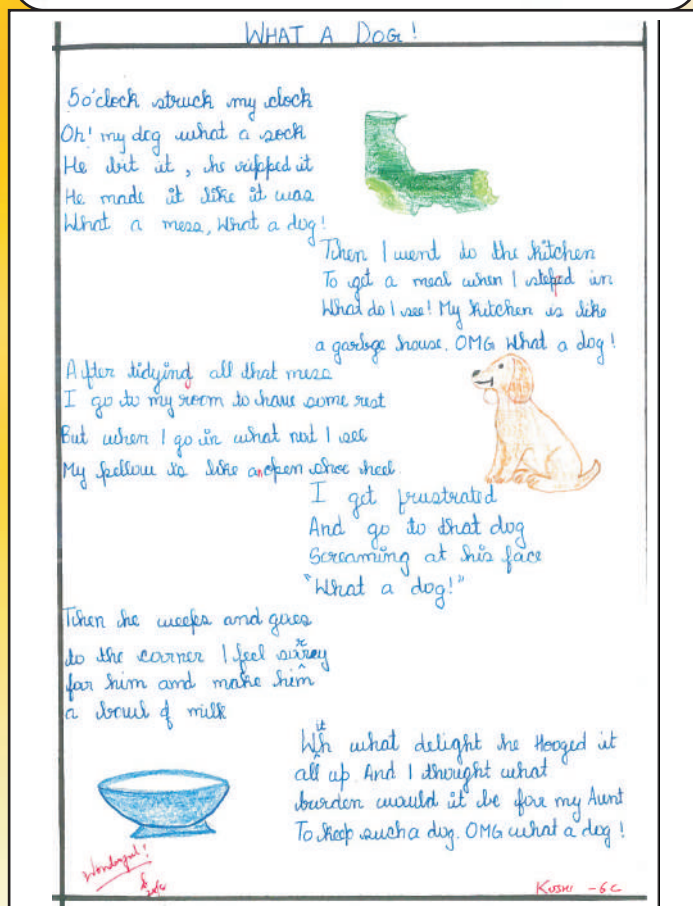 WHAT A DOG!
5o'clock struck my clock
Oh! my dog what a sock
He bit it, he ripped it
He made it like it was
What a mess, What a dog!
Then I went to the kitchen
To get a meal when I steped in
What do I see! My kitchen is like
a garbge house. OMG What a dog!
After tidying all that mess
I go to my room to have some rest
But when I go in what not I see
My pellow is like an open shoe heel.
I get frustrated
And go to that dog
Screaming at his face
"What a dog!"
Then he weeps and goes
to the corner I feel sorrey
for him and make him
a bowl of milk
With what delight he Hooged it
all up. And I thought what
burden would it be for my Aunt
To keep such a dog. OMG what a dog!
Wonderful!
KUSHI - 6C